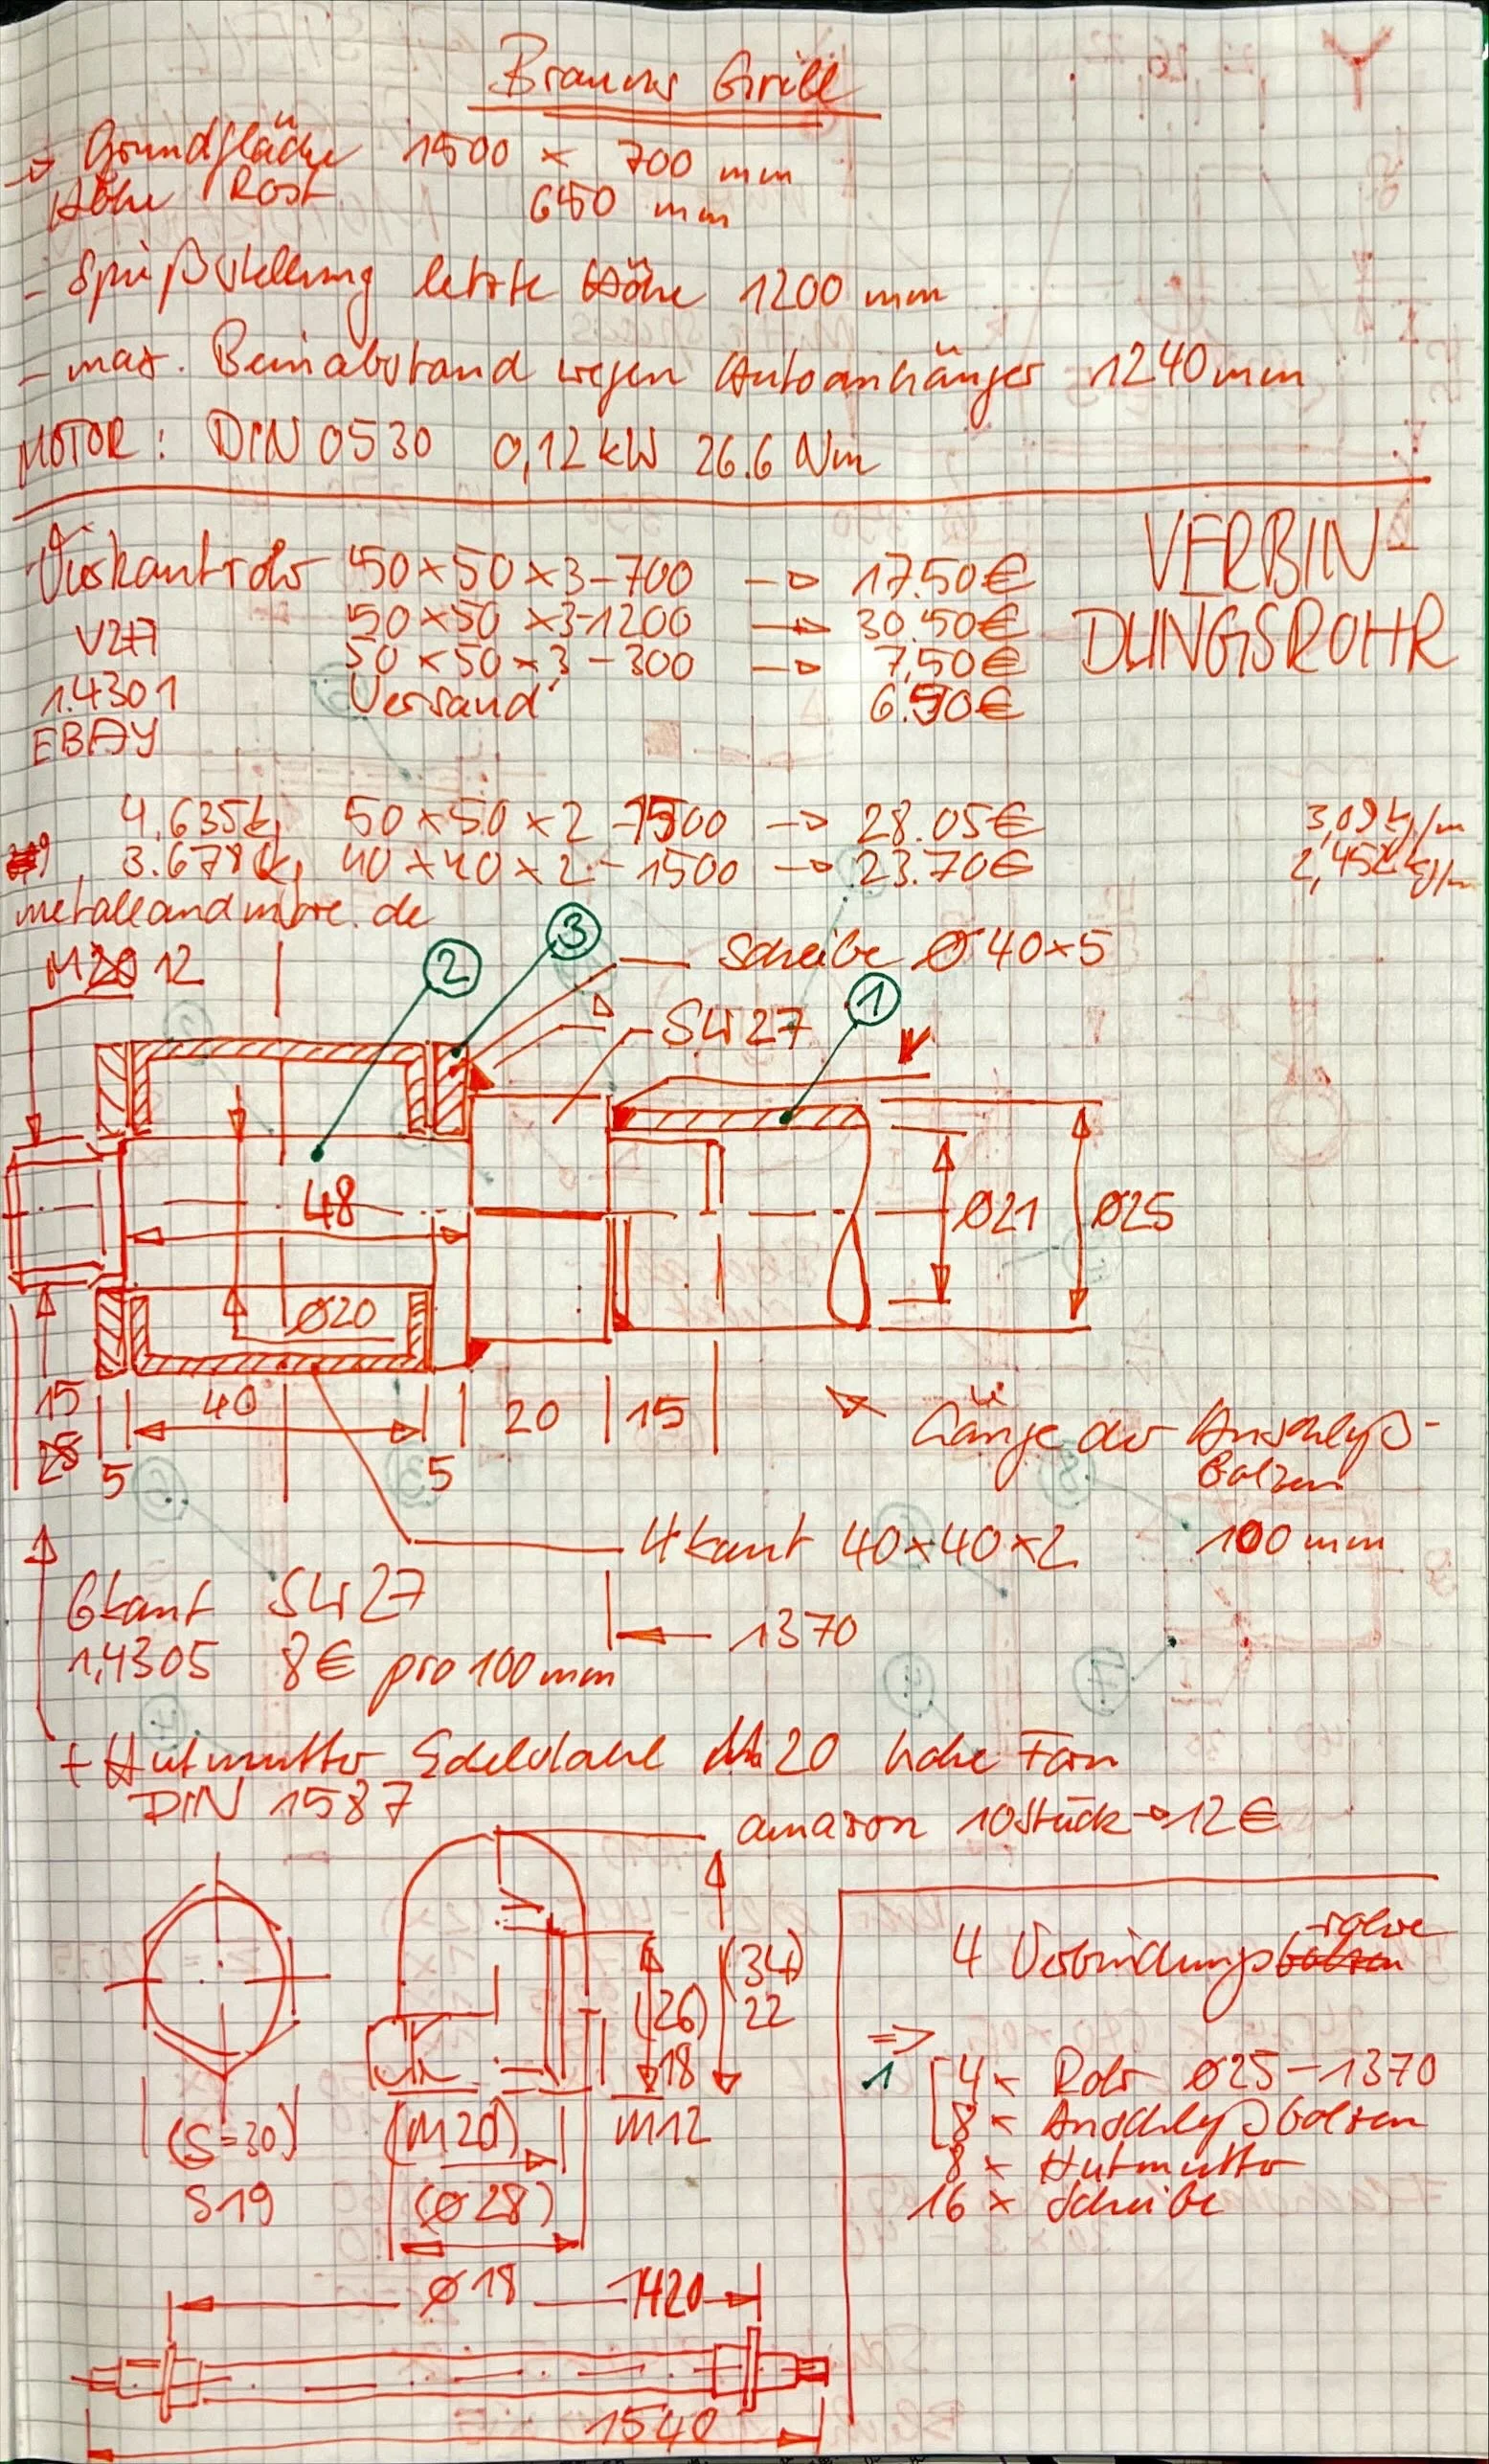 Brauns Grill
→ Grundfläche 1500 × 700 mm
Höhe Rost 650 mm
- Spießstellung letzte Höhe 1200 mm
- max. Beinabstand wegen Autoanhänger 1240 mm
MOTOR: DIN 0530 0,12 kW 26.6 Nm
VERBIN-
DUNGSROHR
Vierkantrohr 50×50×3-700 → 17.50€
V2A 50×50×3-1200 → 30.50€
50×50×3-300 → 7,50€
1.4301 Versand 6.90€
EBAY
4,635kg 50×50×2-1500 → 28.05€ 3,09 kg/m
3.678kg 40×40×2-1500 → 23.70€ 2,452kg/m
metalleandmore.de
M20 12
2
3
Scheibe Ø 40×5
SW27
1
48
Ø21
Ø25
Ø20
15
25
5
40
5
20
15
Länge der Anschluß-
bolzen
100 mm
4kant 40×40×2
6kant SW27
1370
1,4305 8€ pro 100mm
+ Hutmutter Edelstahl M20 hohe Form
DIN 1587
amazon 10 Stück → 12€
(34)
(26) 22
18
(S=30) (M20) M12
S19 (Ø28)
4 Verbindungsbolzen rohre
⇒
1 4× Rohr Ø25-1370
8× Anschlußbolzen
8× Hutmutter
16× Scheibe
Ø18 1420
1540